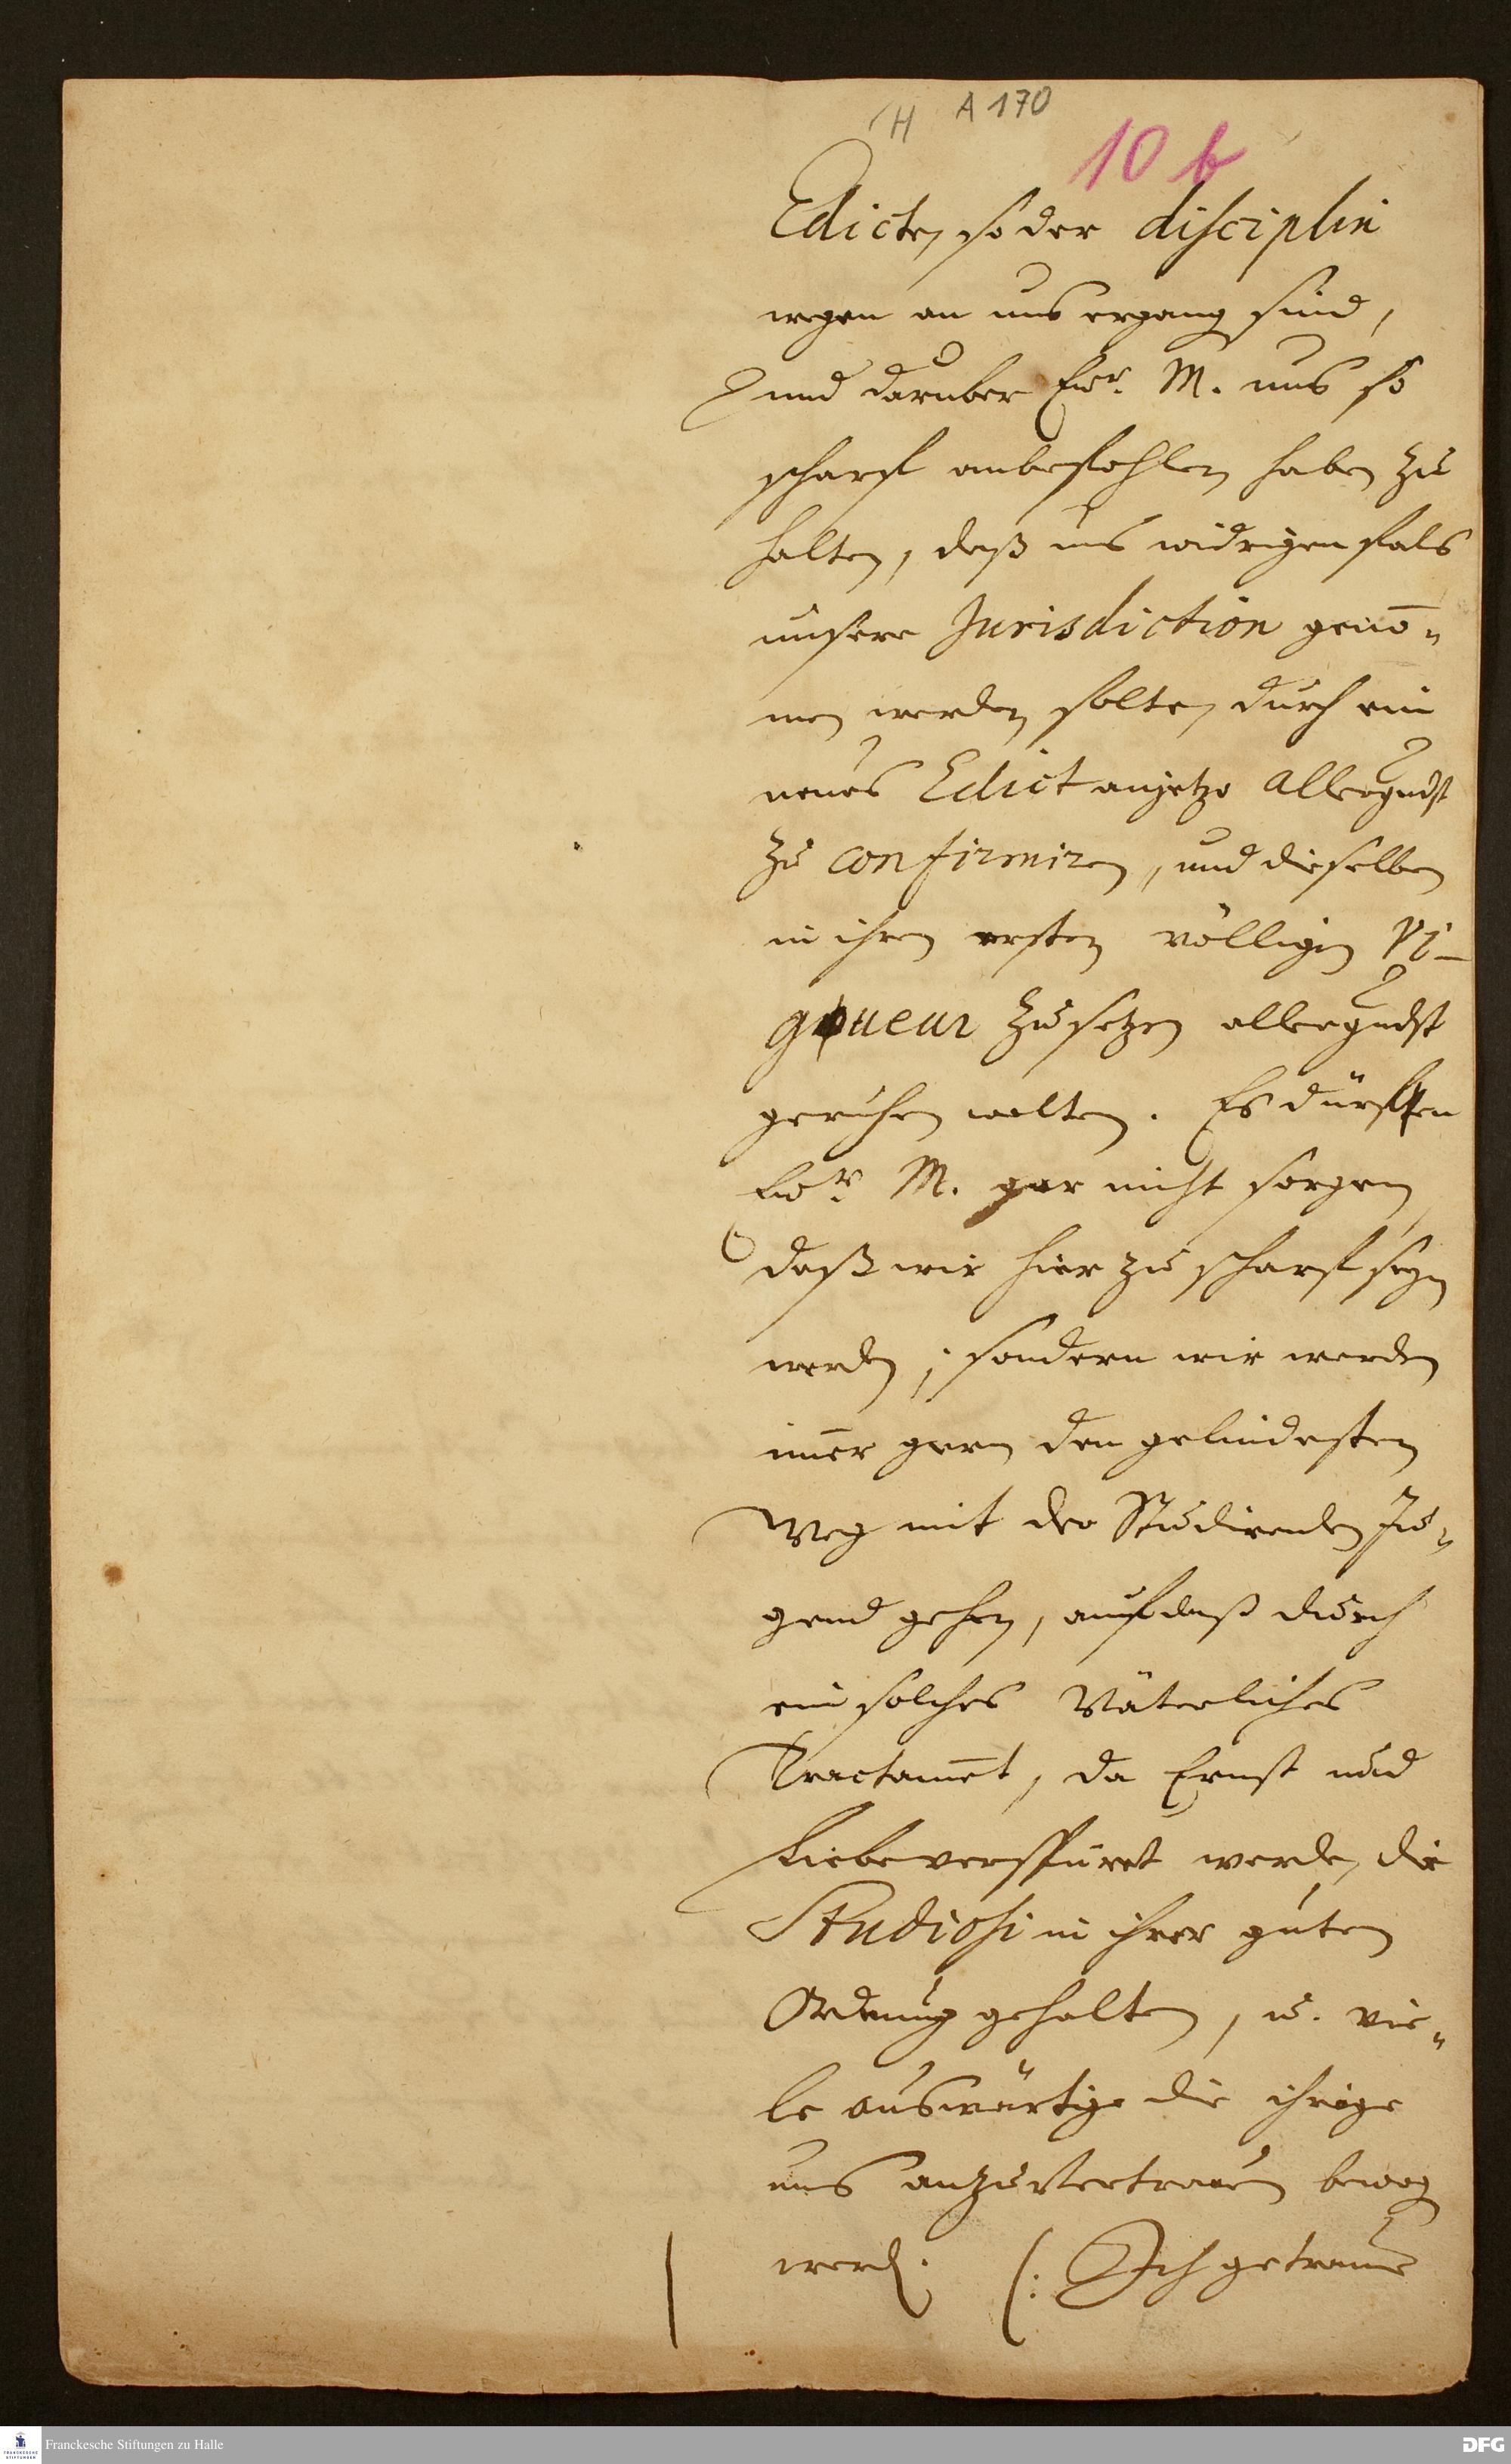 H A 170
10 b
Edicte, so der disciplin
wegen an uns ergang sind,
und daruber Ewr. M. uns so
scharf anbefohlen haben zu
halten, daß uns widrigenfals
unsere Jurisdiction geno̅-
men werden solte, durch ein
neues Edict anjetzo allergndst
zu confirmiren, und dieselben
in ihren ersten völligen Vi-
gueur zu setzen allergndst
geruhen wolten. Es dürften
Ewr. M. gar nicht sorgen,
daß wir hier zu scharf seyn
werden; sondern wir werden
im̅er gern den gelindesten
Weg mit der Studirenden Ju-
gend gehen, auf daß durch
ein solches Väterliches
Tractam̅et, da Ernst und
Liebe verspüret werde, die
Studiosi in ihrer guten
Ordnung gehalten, u. vie-
le auswärtige die ihrige
uns anzuvertrauen bewog
werd. (: Ich getraue
Franckesche Stiftungen zu Halle
DFG
FRANCKESCHE
STIFTUNGEN